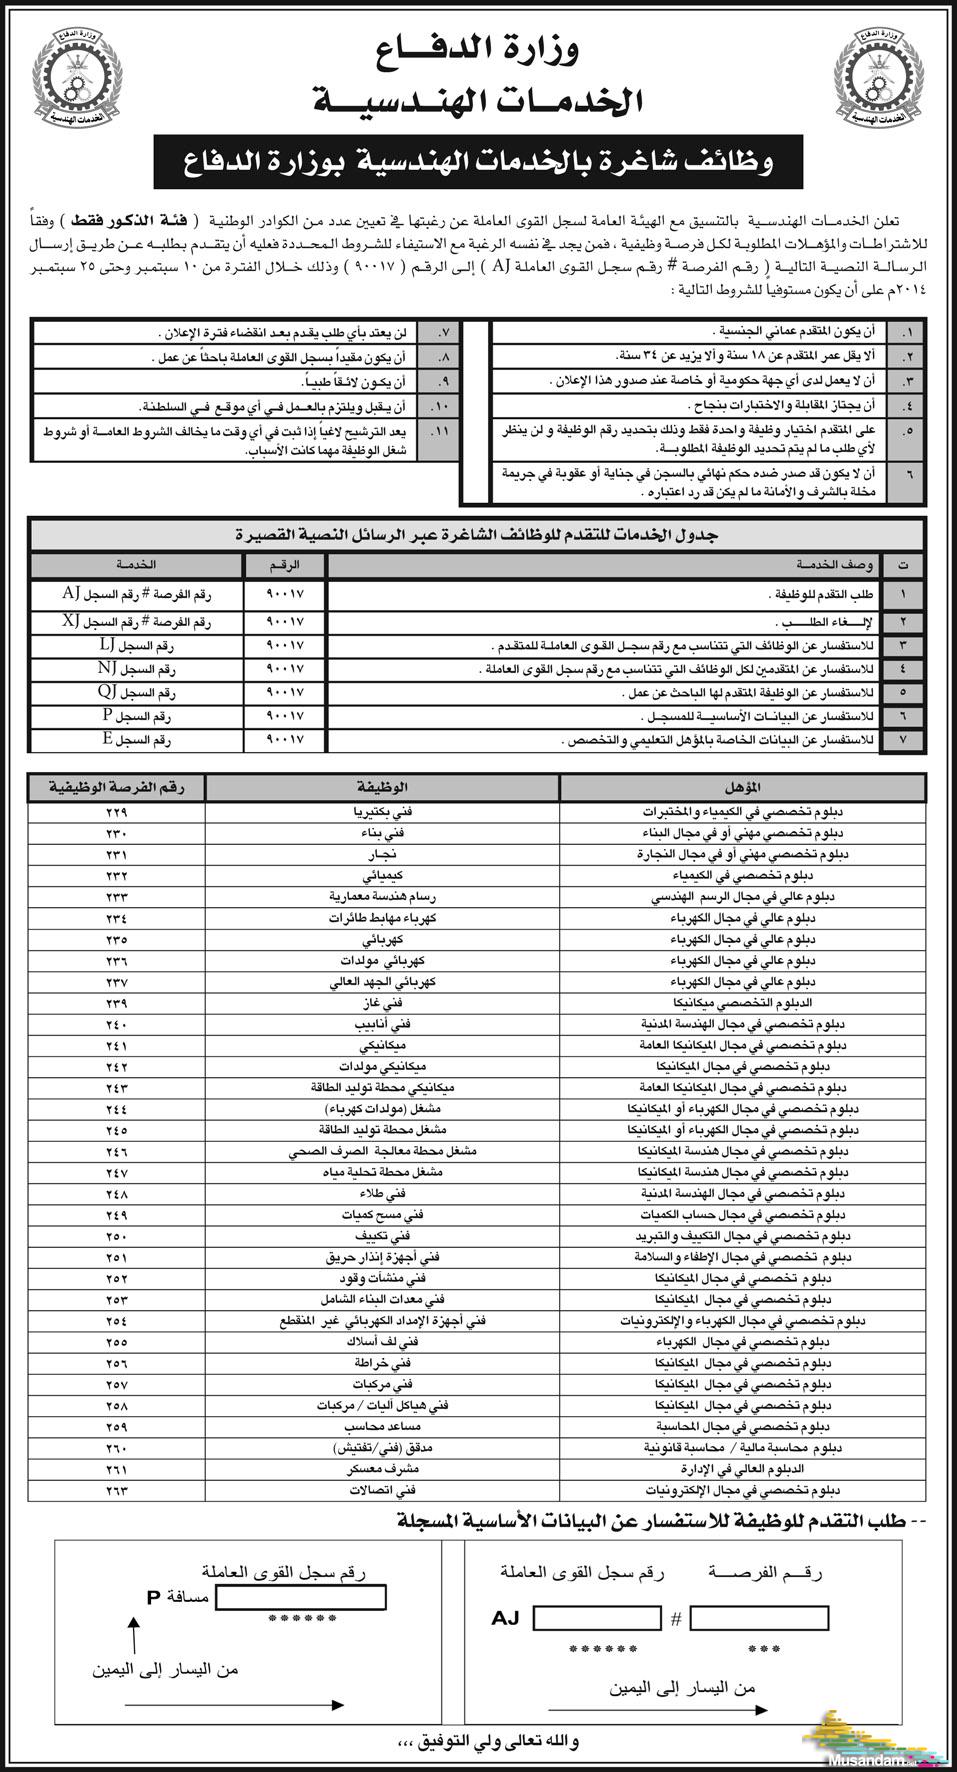 وزارة الدفاع
الخدمات الهندسية
وزارة الدفاع
الخدمات الهندسية
وزارة الدفــاع
الخدمـات الهنـدسيــة
وظائف شاغرة بالخدمات الهندسية بوزارة الدفاع
تعلن الخدمـات الهندسـيـة بالتنسيق مع الهيئة العامة لسجل القوى العاملة عن رغبتها في تعيين عدد مـن الكوادر الوطنية ( فئـة الذكور فقط ) وفقاً
للاشتراطات والمؤهلات المطلوبة لكل فرصة وظيفية ، فمن يجد في نفسه الرغبة مع الاستيفاء للشروط المحددة فعليه أن يتقدم بطلبه عن طريق إرسال
الرسالة النصية التالية ( رقـم الفرصة # رقـم سجل القوى العاملة AJ ) إلى الرقـم ( ٩٠٠١٧ ) وذلك خـلال الفترة من ١٠ سبتمبر وحتى ٢٥ سبتمبر
٢٠١٤م على أن يكون مستوفياً للشروط التالية :
١. أن يكون المتقدم عماني الجنسية .
٢. ألا يقل عمر المتقدم عن ١٨ سنة وألا يزيد عن ٣٤ سنة.
٣. أن لا يعمل لدى أي جهة حكومية أو خاصة عند صدور هذا الإعلان .
٤. أن يجتاز المقابلة والاختبارات بنجاح .
٥. على المتقدم اختيار وظيفة واحدة فقط وذلك بتحديد رقم الوظيفة و لن ينظر
لأي طلب ما لم يتم تحديد الوظيفة المطلوبـة.
٦ أن لا يكون قد صدر ضده حكم نهائي بالسجن في جناية أو عقوبة في جريمة
مخلة بالشرف والأمانة ما لم يكن قد رد اعتباره .
٧. لن يعتد بأي طلب يقدم بعد انقضاء فترة الإعلان .
٨. أن يكون مقيداً بسجل القوى العاملة باحثاً عن عمل .
٩. أن يكـون لائقـاً طبيـاً.
١٠. أن يـقبل ويلتزم بالعمل في أي موقـع في السلطنة.
١١. يعد الترشيح لاغياً إذا ثبت في أي وقت ما يخالف الشروط العامـة أو شروط
شغل الوظيفة مهما كانت الأسباب.
جدول الخدمات للتقدم للوظائف الشاغرة عبر الرسائل النصية القصيرة
ت وصف الخدمـة الرقـم الخدمـة
١ طلب التقدم للوظيفة . ٩٠٠١٧ رقم الفرصة # رقم السجل AJ
٢ لإلـــغاء الطلـــب . ٩٠٠١٧ رقم الفرصة # رقم السجل XJ
٣ للاستفسار عن الوظائف التي تتناسب مع رقم سجـل القـوى العاملـة للمتقدم . ٩٠٠١٧ رقم السجل LJ
٤ للاستفسار عن المتقدمين لكل الوظائف التي تتناسب مع رقم سجل القوى العاملة . ٩٠٠١٧ رقم السجل NJ
٥ للاستفسار عن الوظيفة المتقدم لها الباحث عن عمل . ٩٠٠١٧ رقم السجل QJ
٦ للاستفسار عن البيانات الأساسيـة للمسجـل . ٩٠٠١٧ رقم السجل P
٧ للاستفسار عن البيانات الخاصة بالمؤهل التعليمي والتخصص . ٩٠٠١٧ رقم السجل E
المؤهل الوظيفة رقم الفرصة الوظيفية
دبلوم تخصصي في الكيمياء والمختبرات فني بكتيريا ٢٢٩
دبلوم تخصصي مهني أو في مجال البناء فني بناء ٢٣٠
دبلوم تخصصي مهني أو في مجال النجارة نجـار ٢٣١
دبلوم تخصصي في الكيمياء كيميائي ٢٣٢
دبلوم عالي في مجال الرسم الهندسي رسام هندسة معمارية ٢٣٣
دبلوم عالي في مجال الكهرباء كهرباء مهابط طائرات ٢٣٤
دبلوم عالي في مجال الكهرباء كهربائي ٢٣٥
دبلوم عالي في مجال الكهرباء كهربائي مولدات ٢٣٦
دبلوم عالي في مجال الكهرباء كهربائي الجهد العالي ٢٣٧
الدبلوم التخصصي ميكانيكا فني غاز ٢٣٩
دبلوم تخصصي في مجال الهندسة المدنية فني أنابيب ٢٤٠
دبلوم تخصصي في مجال الميكانيكا العامة ميكانيكي ٢٤١
دبلوم تخصصي في مجال الميكانيكا ميكانيكي مولدات ٢٤٢
دبلوم تخصصي في مجال الميكانيكا العامة ميكانيكي محطة توليد الطاقة ٢٤٣
دبلوم تخصصي في مجال الكهرباء أو الميكانيكا مشغل (مولدات كهرباء) ٢٤٤
دبلوم تخصصي في مجال الكهرباء أو الميكانيكا مشغل محطة توليد الطاقة ٢٤٥
دبلوم تخصصي في مجال هندسة الميكانيكا مشغل محطة معالجة الصرف الصحي ٢٤٦
دبلوم تخصصي في مجال هندسة الميكانيكا مشغل محطة تحلية مياه ٢٤٧
دبلوم تخصصي في مجال الهندسة المدنية فني طلاء ٢٤٨
دبلوم تخصصي في مجال حساب الكميات فني مسح كميات ٢٤٩
دبلوم تخصصي في مجال التكييف والتبريد فني تكييف ٢٥٠
دبلوم تخصصي في مجال الإطفاء والسلامة فني أجهزة إنذار حريق ٢٥١
دبلوم تخصصي في مجال الميكانيكا فني منشآت وقود ٢٥٢
دبلوم تخصصي في مجال الميكانيكا فني معدات البناء الشامل ٢٥٣
دبلوم تخصصي في مجال الكهرباء والإلكترونيات فني أجهزة الإمداد الكهربائي غير المنقطع ٢٥٤
دبلوم تخصصي في مجال الكهرباء فني لف أسلاك ٢٥٥
دبلوم تخصصي في مجال الميكانيكا فني خراطة ٢٥٦
دبلوم تخصصي في مجال الميكانيكا فني مركبات ٢٥٧
دبلوم تخصصي في مجال الميكانيكا فني هياكل آليات / مركبات ٢٥٨
دبلوم تخصصي في مجال المحاسبة مساعد محاسب ٢٥٩
دبلوم محاسبة مالية / محاسبة قانونية مدقق (فني/تفتيش) ٢٦٠
الدبلوم العالي في الإدارة مشرف معسكر ٢٦١
دبلوم تخصصي في مجال الإلكترونيات فني اتصالات ٢٦٣
-- طلب التقدم للوظيفة للاستفسار عن البيانات الأساسية المسجلة
رقـم الفرصـــة رقم سجل القوى العاملة
# AJ
*** ******
من اليسار إلى اليمين
رقم سجل القوى العاملة
مسافة P
******
من اليسار إلى اليمين
والله تعالى ولي التوفيق ،،،
Musandam